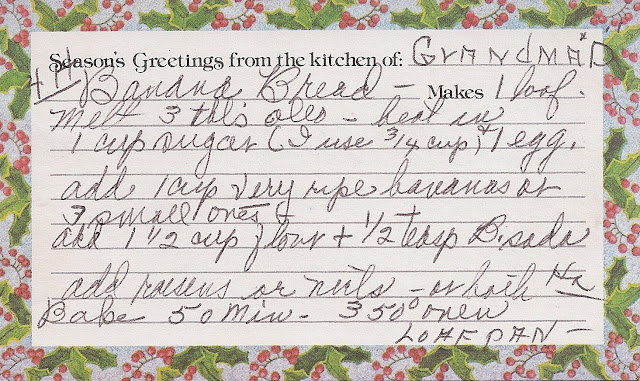 Season's Greetings from the kitchen of: GRANDMA D
4H Banana Bread - Makes 1 loaf.
Melt 3 tbls oleo - beat in
1 cup sugar (I use 3/4 cup) + 1 egg.
add 1 cup very ripe bananas or
3 small ones
add 1 1/2 cup flour + 1/2 teasp B. soda
add raisens or nuts - or both
Bake 50 min - 350° oven
LOAF PAN -